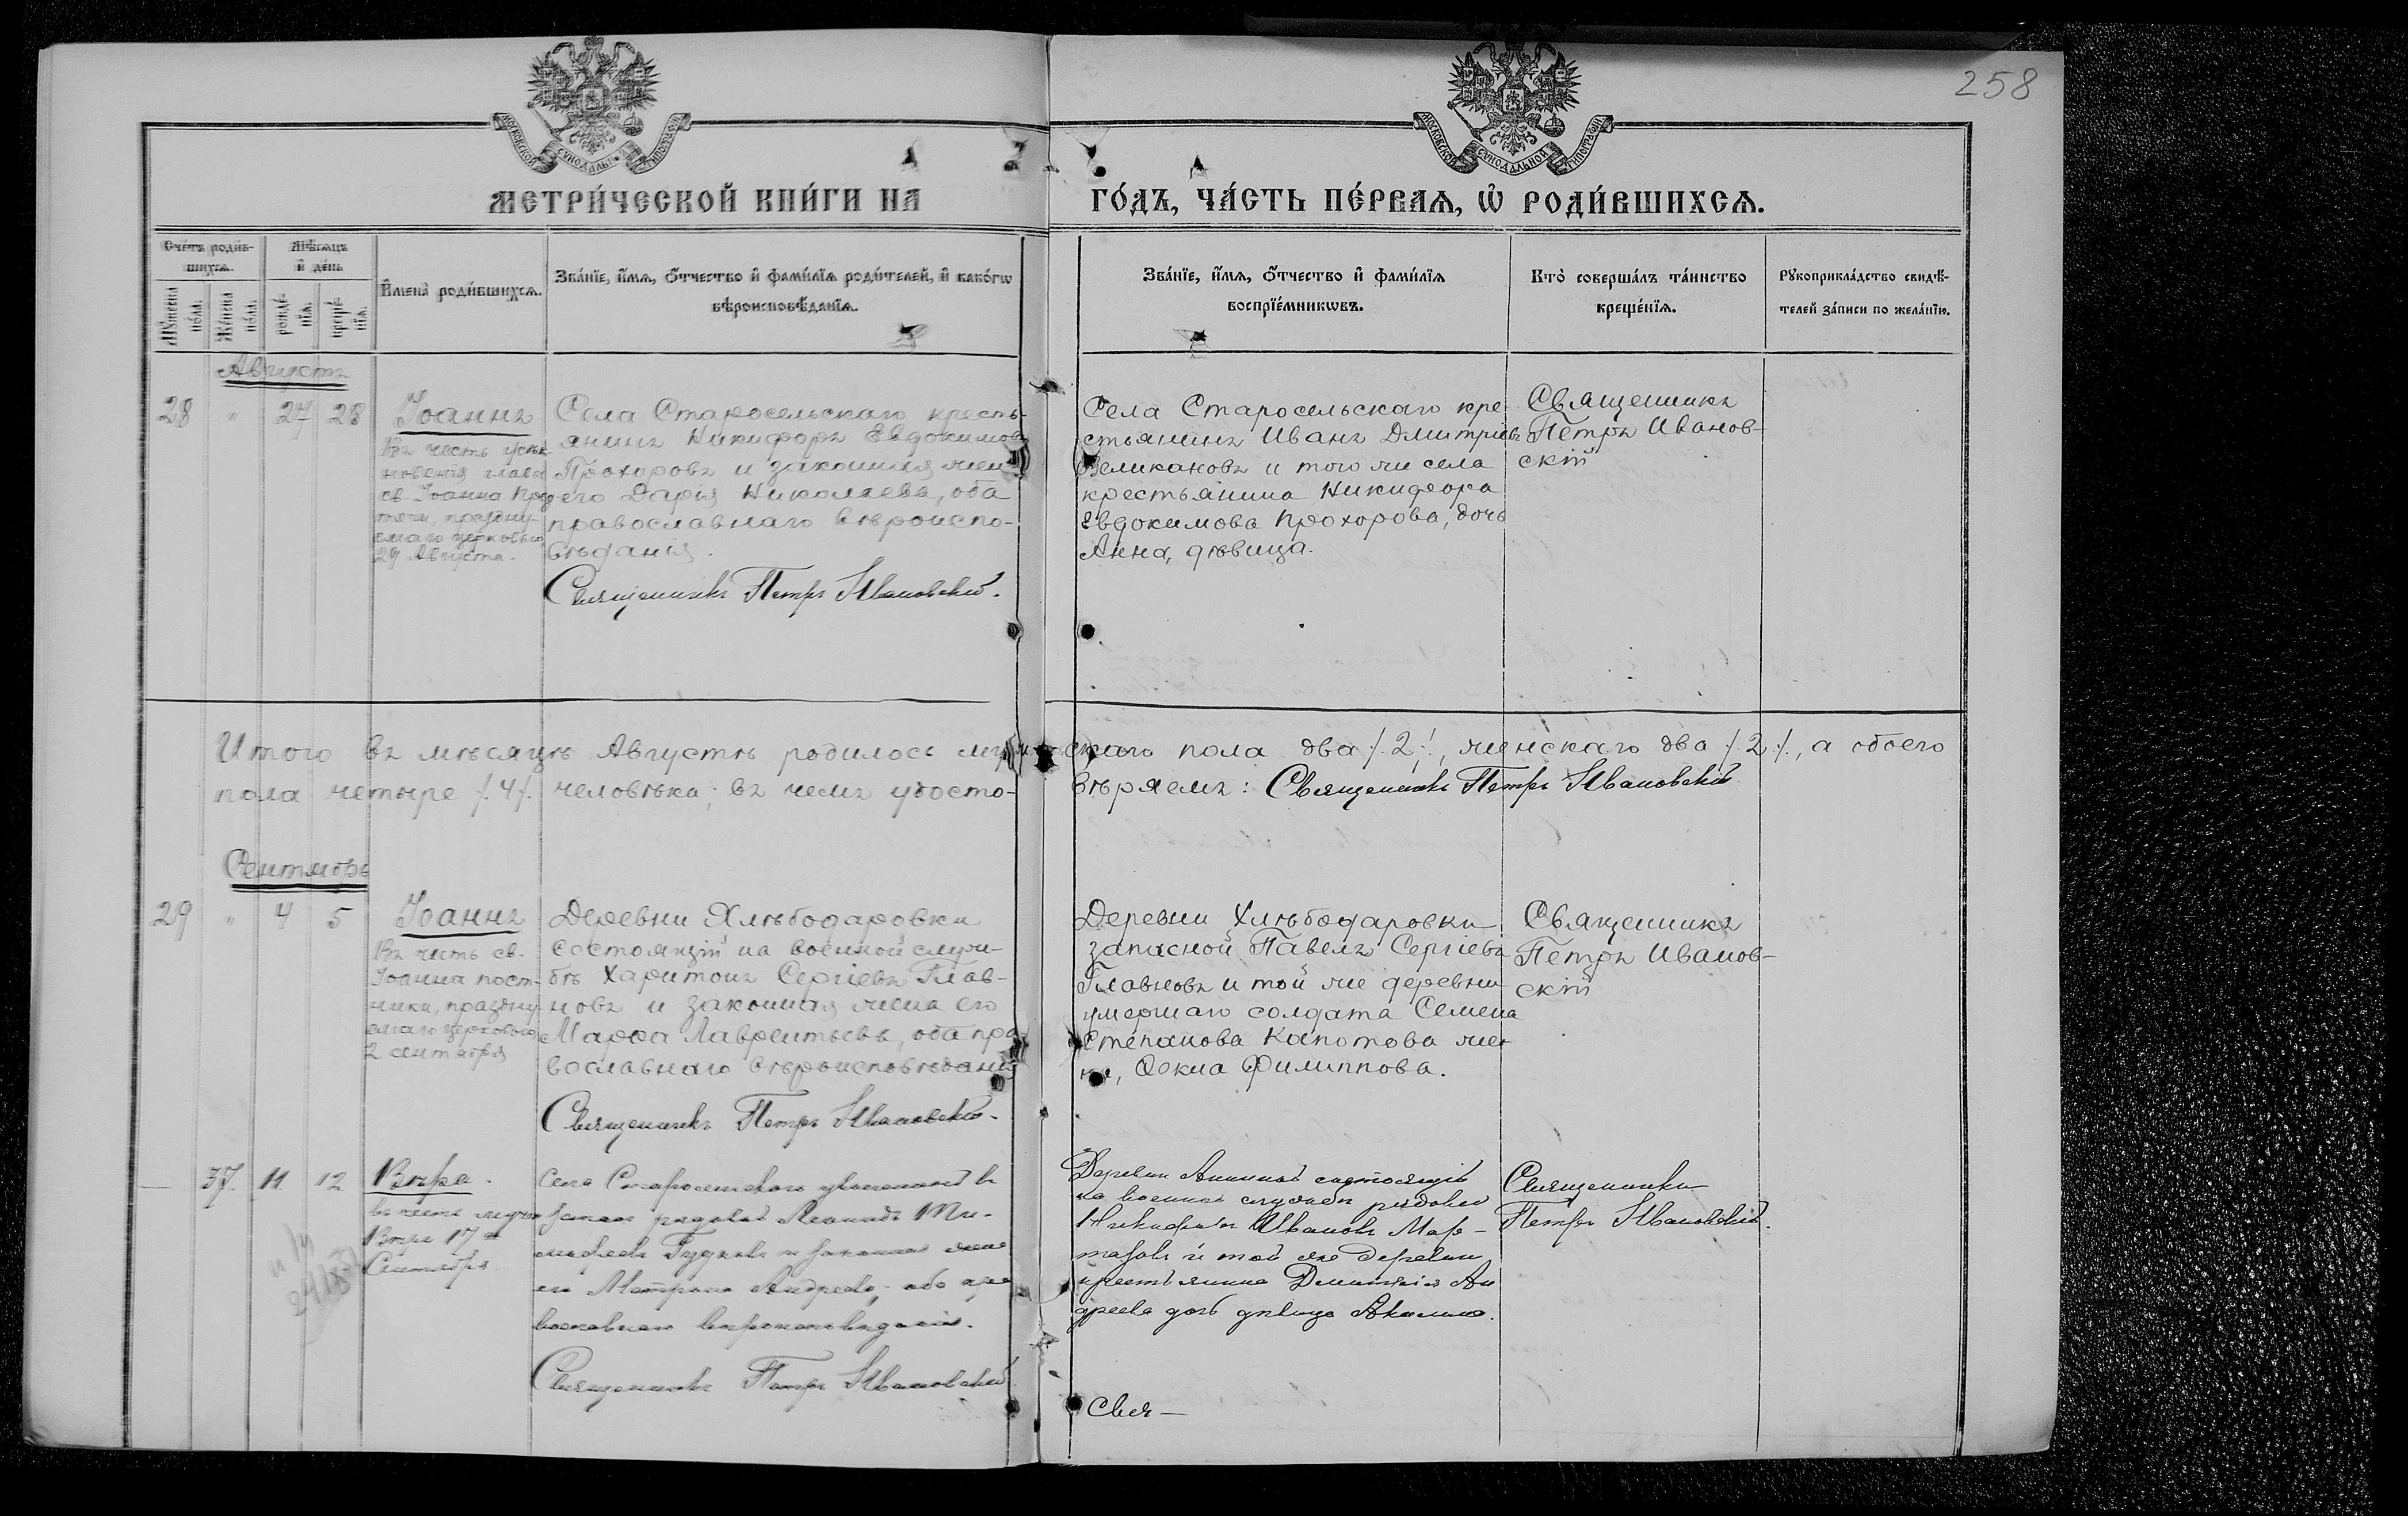 258
МОСКОВСКОЙ СѴНОДАЛЬНОЙ ТИПОГРАФІИ
МОСКОВСКОЙ СѴНОДАЛЬНОЙ ТИПОГРАФІИ
МЕТРИ́ЧЕСКОЙ КНИ́ГИ НА
ГО́ДЪ, ЧА́СТЬ ПЕ́РВАѦ, Ѡ҆ РОДИ́ВШИХСѦ.
Сче́тъ роди́в-
шихсѧ.
Мꙋ́жеска
по́ла.
Же́нска
по́ла.
Мѣ́сѧцъ
и҆ де́нь
рожде́-
нїѧ.
креще́-
нїѧ.
И҆мена̀ роди́вшихсѧ.
Зва́нїе, и҆́мѧ, ѻ҆́тчество и҆ фами́лїѧ роди́телей, и҆ како́гѡ
вѣроисповѣ́данїѧ.
Зва́нїе, и҆́мѧ, ѻ҆́тчество и҆ фами́лїѧ
воспрїе́мникѡвъ.
Кто̀ соверша́лъ та́инство
креще́нїѧ.
Рꙋкоприкла́дство свидѣ́-
телей за́писи по жела́нїю.
Августъ
28 " 27 28
Іоаннъ
Въ честь усѣк-
новенія главы
св. Іоанна Пред-
течи, праздну-
емаго церковью
29 Августа.
Села Старосельскаго кресть-
янинъ Никифоръ Евдокимовъ
Прохоровъ и законная жена
его Дарія Николаева, оба
православнаго вѣроиспо-
вѣданія.
Священникъ Петръ Ивановскій.
Села Старосельскаго кре-
стьянинъ Иванъ Дмитріевъ
Великановъ и того же села
крестьянина Никифора
Евдокимова Прохорова, дочь
Анна, дѣвица.
Священникъ
Петръ Иванов-
скій
Итого въ мѣсяцѣ Августѣ родилось мужескаго пола два /.2./, женскаго два /.2./, а обоего
пола четыре /.4./ человѣка; въ чемъ удосто-
вѣряемъ: Священникъ Петръ Ивановскій
Сентябрь
29 " 4 5
Іоаннъ
Въ честь св.
Іоанна пост-
ника, праздну-
емаго церковью
2 сентября
Деревни Хлѣбодаровки
состоящій на военной служ-
бѣ Харитонъ Сергіевъ Глав-
новъ и законная жена его
Марѳа Лаврентьева, оба пра-
вославнаго вѣроисповѣданія
Священникъ Петръ Ивановскій.
Деревни Хлѣбодаровки
запасной Павелъ Сергіевъ
Главновъ и той же деревни
умершаго солдата Семена
Степанова Капотова же-
на, Ѳекла Филиппова.
Священникъ
Петръ Иванов-
скій
— 37. 11 12
Вѣра.
въ честь мучен.
Вѣры 17го
Сентября.
Села Старосельскаго уволенный въ
запас рядовой Леонидъ Ти-
моѳеевъ Гудковъ и законная жена
его Матрона Андреева, оба пра-
вославнаго вѣроисповѣданія.
Священникъ Петръ Ивановскій
Деревни Аннина состоящій
на военной службѣ рядовой
Никифоръ Ивановъ Мар-
тазовъ и той же деревни
крестьянина Димитрія Ан
дреева дочь дѣвица Акилина.
Священникъ
Петръ Ивановскій.
Свя—